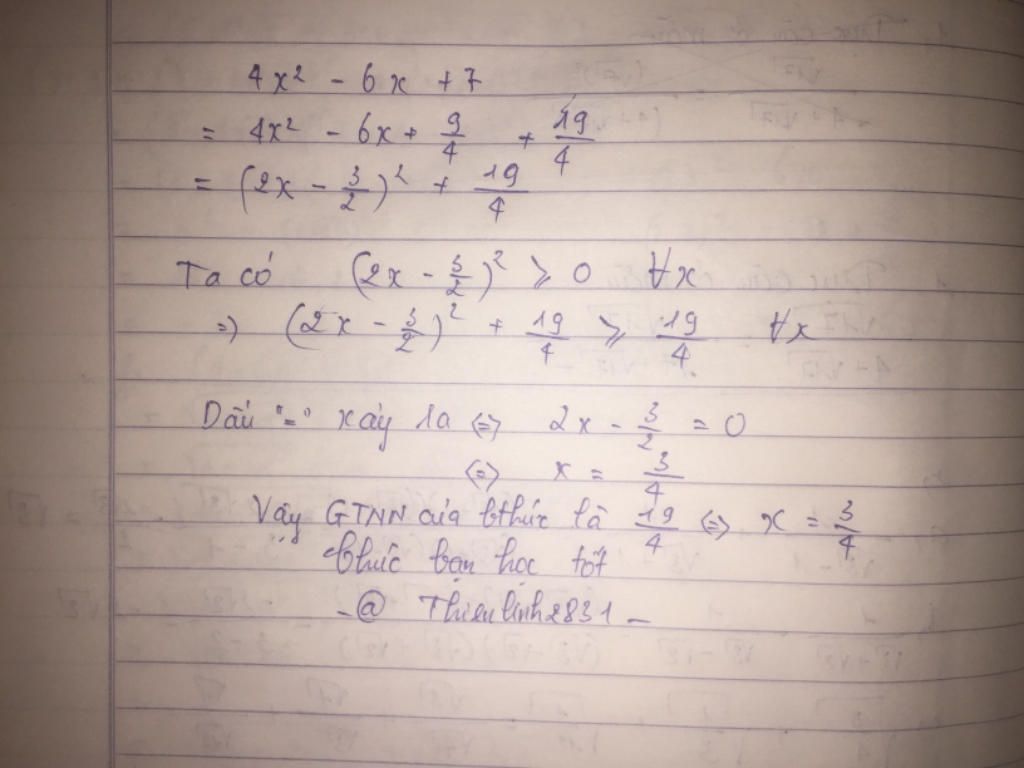 4x² - 6x + 7
= 4x² - 6x + 9/4 + 19/4
= (2x - 3/2)² + 19/4
Ta có (2x - 3/2)² ⩾ 0 ∀x
=> (2x - 3/2)² + 19/4 ⩾ 19/4 ∀x
Dấu "=" xảy ra <=> 2x - 3/2 = 0
<=> x = 3/4
Vậy GTNN của bthức là 19/4 <=> x = 3/4
Chúc bạn học tốt
-@ Thienlinh2831 -